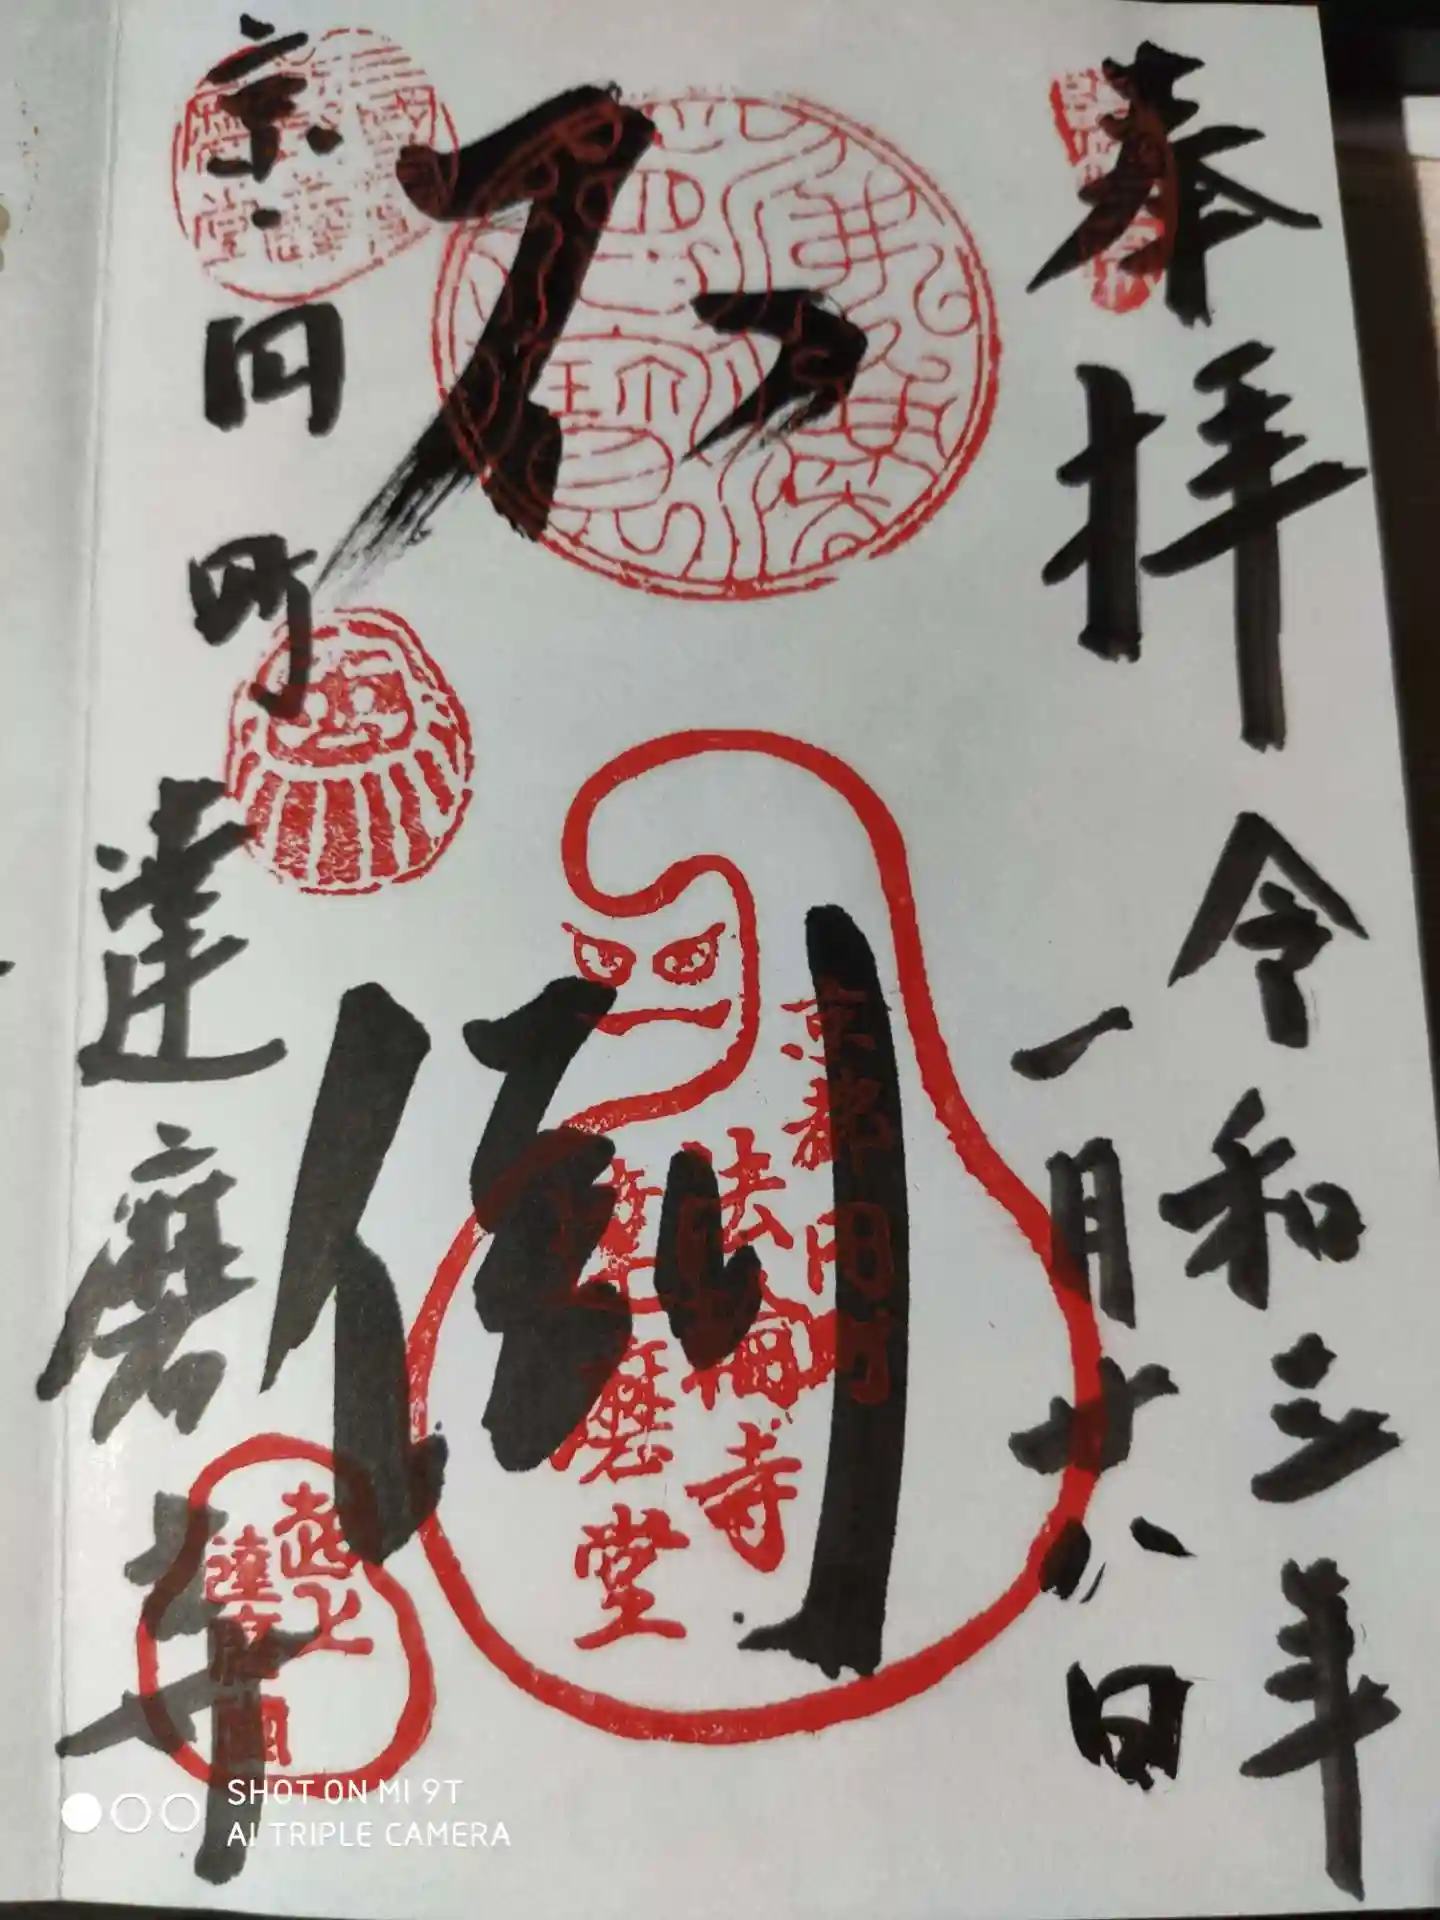 奉拝 令和三年
一月廿八日
不倒
京都円町
法輪寺
達磨堂
京円町達磨寺
起上
SHOT ON MI 9T
AI TRIPLE CAMERA